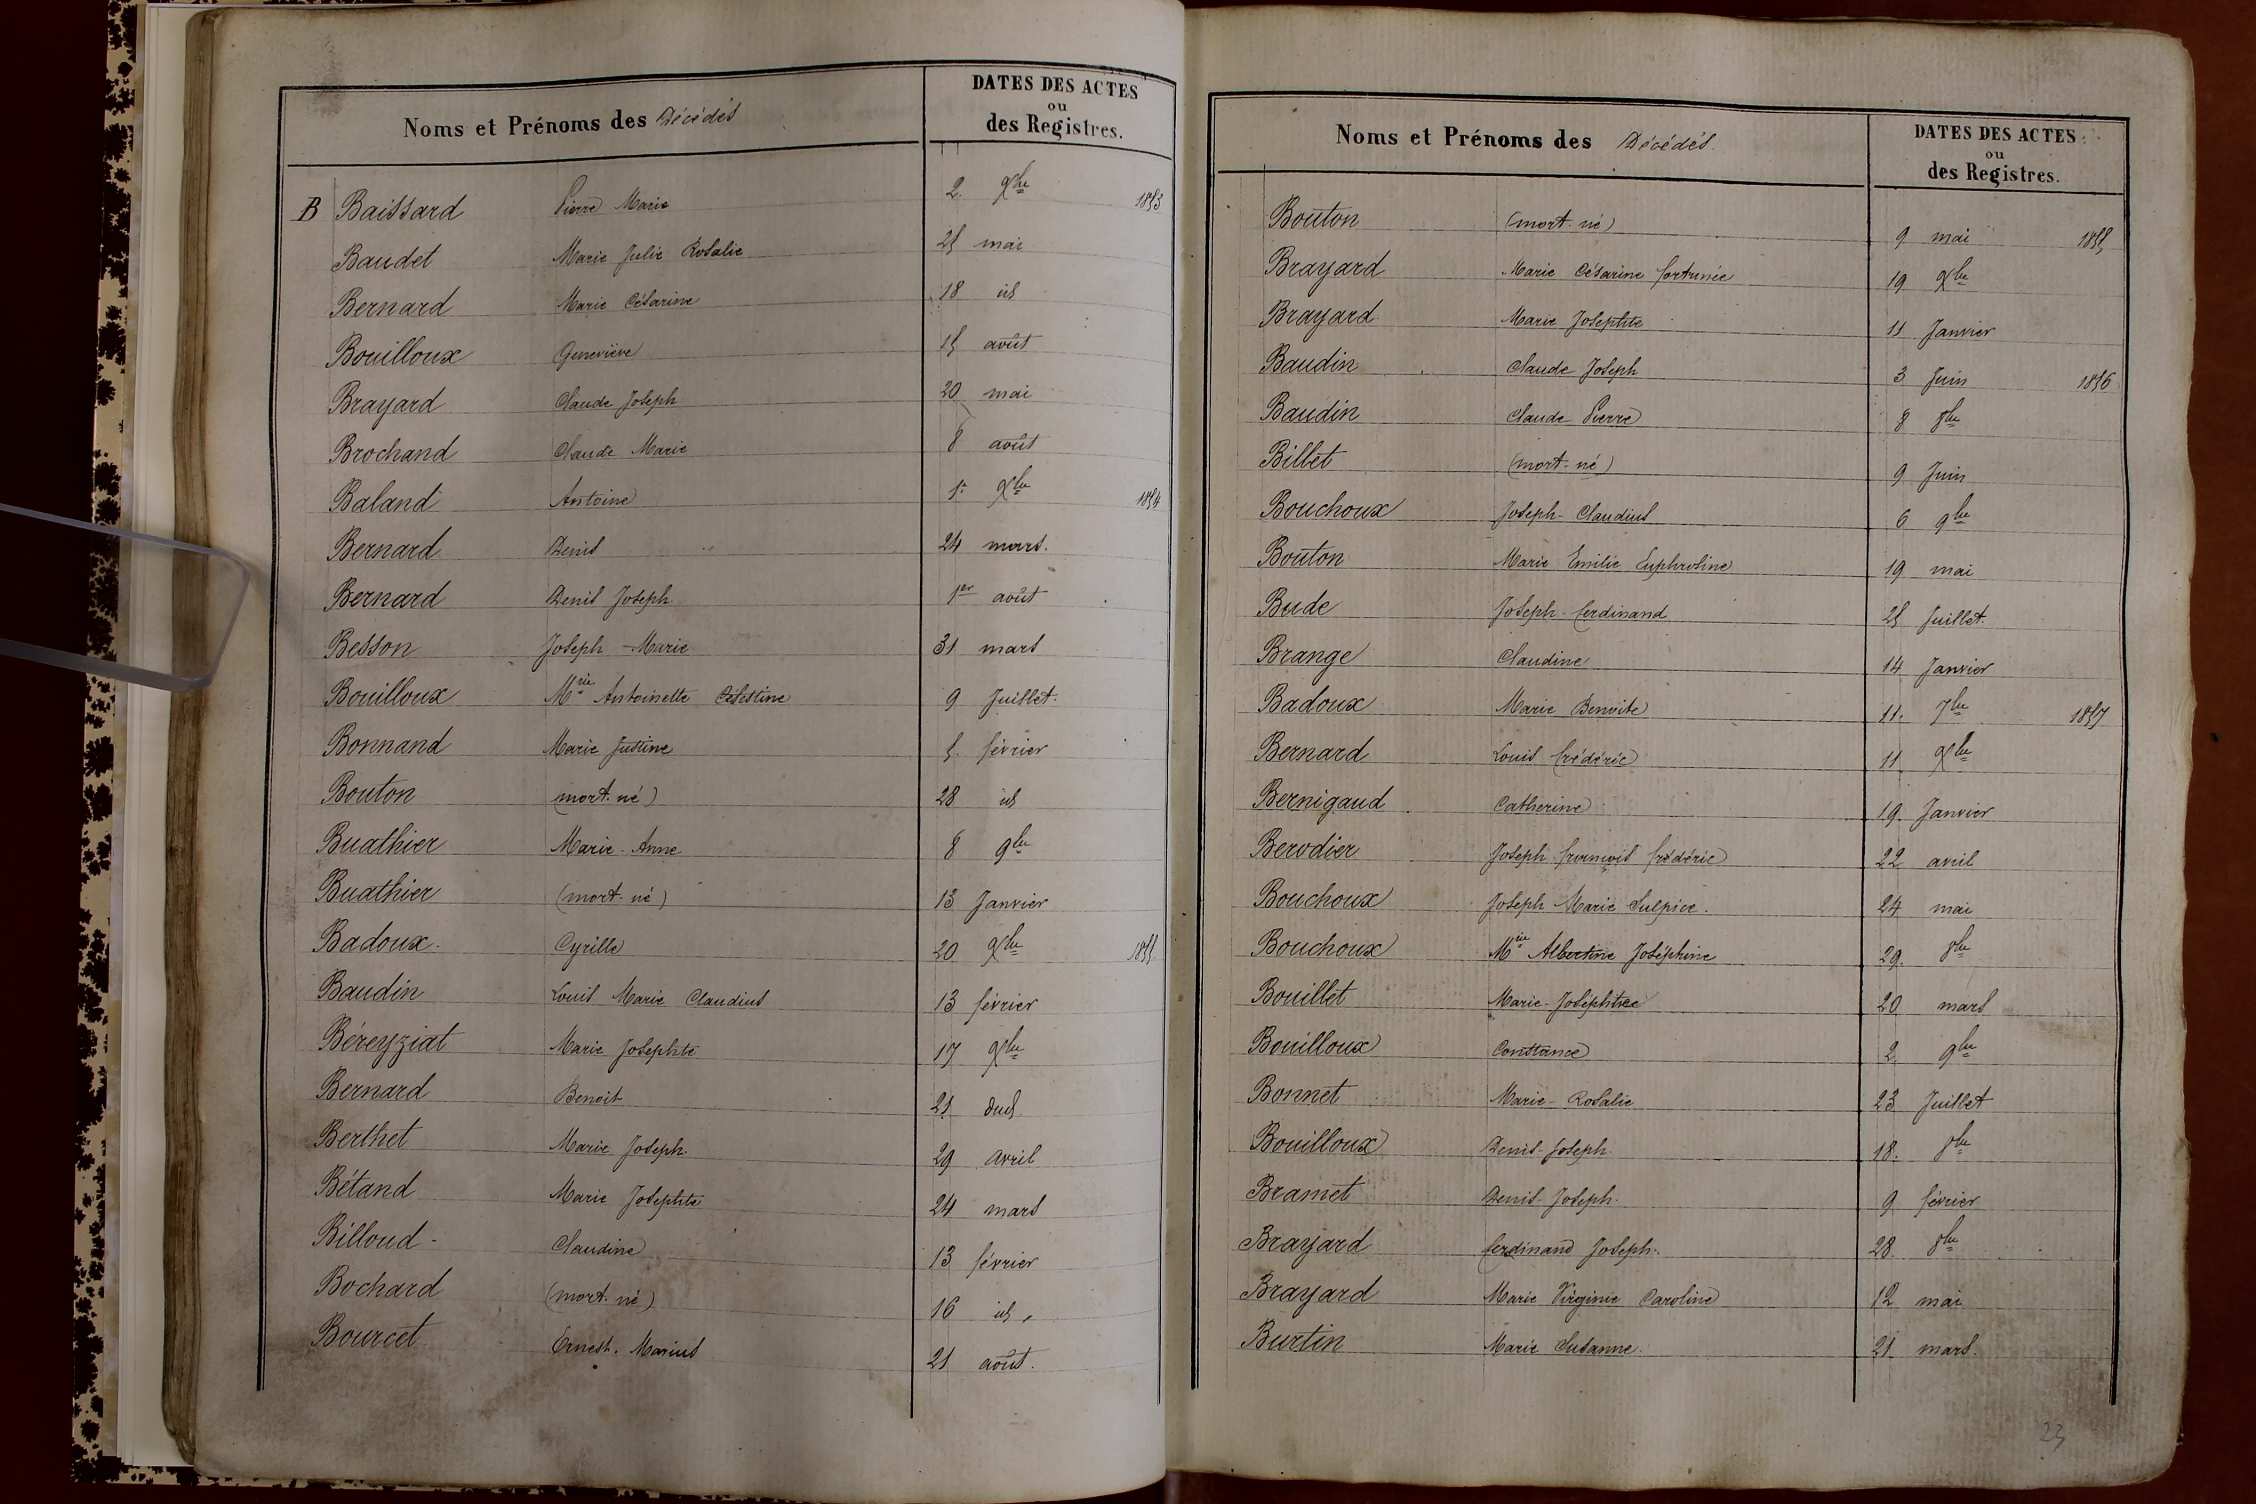 Noms et Prénoms des Décédés
DATES DES ACTES
ou
des Registres.
B Baissard Pierre Marie 2. Xbre 1853
Baudet Marie Julie Rosalie 25 mai
Bernard Marie Césarine 18 id
Bouilloux Geneviève 15 août
Brayard Claude Joseph 20 mai
Brochand Claude Marie 8 août
Baland Antoine 1er Xbre 1854
Bernard Denis 24 mars.
Bernard Denis Joseph 1er août
Besson Joseph-Marie 31 mars
Bouilloux Mrie Antoinette Célestine 9 Juillet.
Bonnand Marie Justine 5. février
Bouton mort-né) 28 id
Buathier Marie-Anne 8 9bre
Buathier (mort-né) 13 Janvier
Badoux. Cyrille 20 Xbre 1855
Baudin Louis Marie Claudius 13 février
Béreyziat Marie Josephte 17 Xbre
Bernard Benoit 21 dud
Berthet Marie Joseph. 29 avril
Bétand Marie Josephte 24 mars
Billoud - Claudine 13 février
Bochard (mort-né) 16 id.
Bourcet Ernest. Marius 21 août.
Noms et Prénoms des Décédés.
DATES DES ACTES
ou
des Registres.
Bouton (mort-né) 9 mai 1855
Brayard Marie Césarine fortunée 19 Xbre
Brayard Marie Josephte 11 Janvier
Baudin Claude Joseph 3 Juin 1856
Baudin Claude Pierre 8 8bre
Billet (mort-né) 9 Juin
Bouchoux Joseph-Claudius 6 9bre
Bouton Marie Emilie Euphrosine 19 mai
Bude Joseph-ferdinand 25 Juillet.
Brange Claudine 14 Janvier
Badoux Marie Benoite 11. 7bre 1857
Bernard Louis frédéric 11 Xbre
Bernigaud Catherine 19. Janvier
Berodier Joseph françois frédéric 22 avril
Bouchoux Joseph Marie Sulpice. 24 mai
Bouchoux Mrie Albertine Joséphine 29. 8bre
Bouillet Marie-Joséphtee 20 mars
Bouilloux Constance 2. 9bre
Bonnet Marie-Rosalie 23 Juillet
Bouilloux Denis-Joseph 18. 8bre
Bramet Denis-Joseph. 9 février
Brayard ferdinand Joseph. 28. 8bre
Brayard Marie Virginie Caroline 12 mai
Burtin Marie Susanne. 21 mars.
23